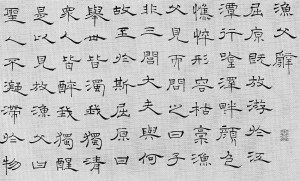 漁父辭
屈原既放游於江
潭行吟澤畔顏色
憔悴形容枯槁漁
父見而問之曰子
非三閭大夫與何
故至於斯屈原曰
舉世皆濁我獨清
衆人皆醉我獨醒
是以見放漁父曰
聖人不凝滯於物